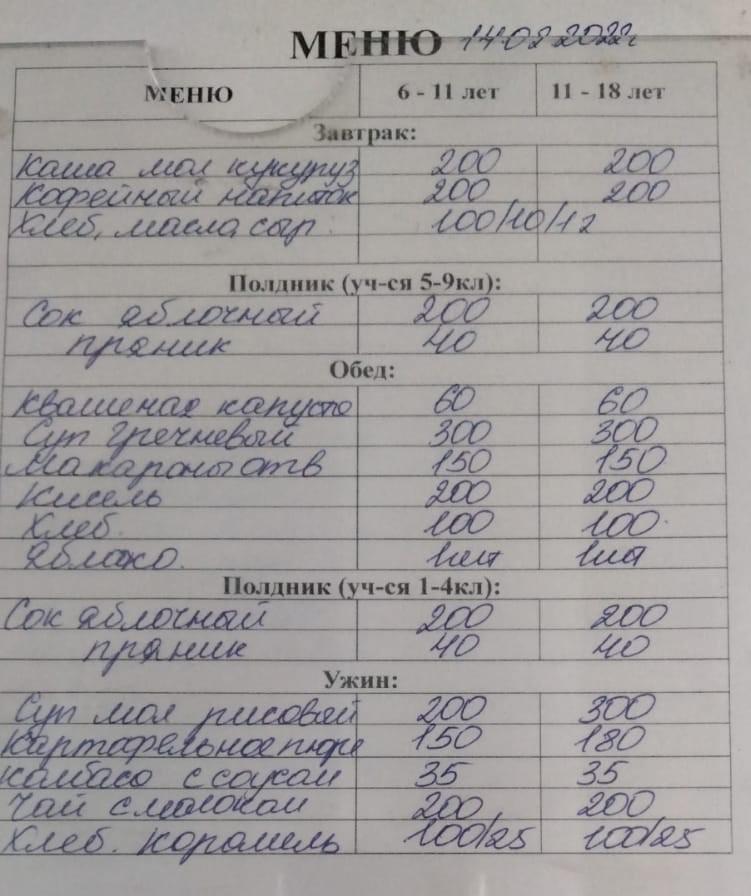 МЕНЮ 14 02 2022г
МЕНЮ 6 - 11 лет 11 - 18 лет
Завтрак:
Каша мол кукуруз 200 200
Кофейный напиток 200 200
Хлеб, масла, сыр. 100/10/12
Полдник (уч-ся 5-9кл):
Сок яблочный 200 200
пряник 40 40
Обед:
Квашеная капуста 60 60
Суп гречневый 300 300
Макароны отв 150 150
Кисель 200 200
Хлеб. 100 100.
Яблоко. 1шт 1шт
Полдник (уч-ся 1-4кл):
Сок яблочный 200 200
пряник 40 40
Ужин:
Суп мол рисовый 200 300
Картофельное пюре 150 180
колбаса с соусом 35 35
Чай с молоком 200 200
Хлеб. Корамель 100/25 100/25